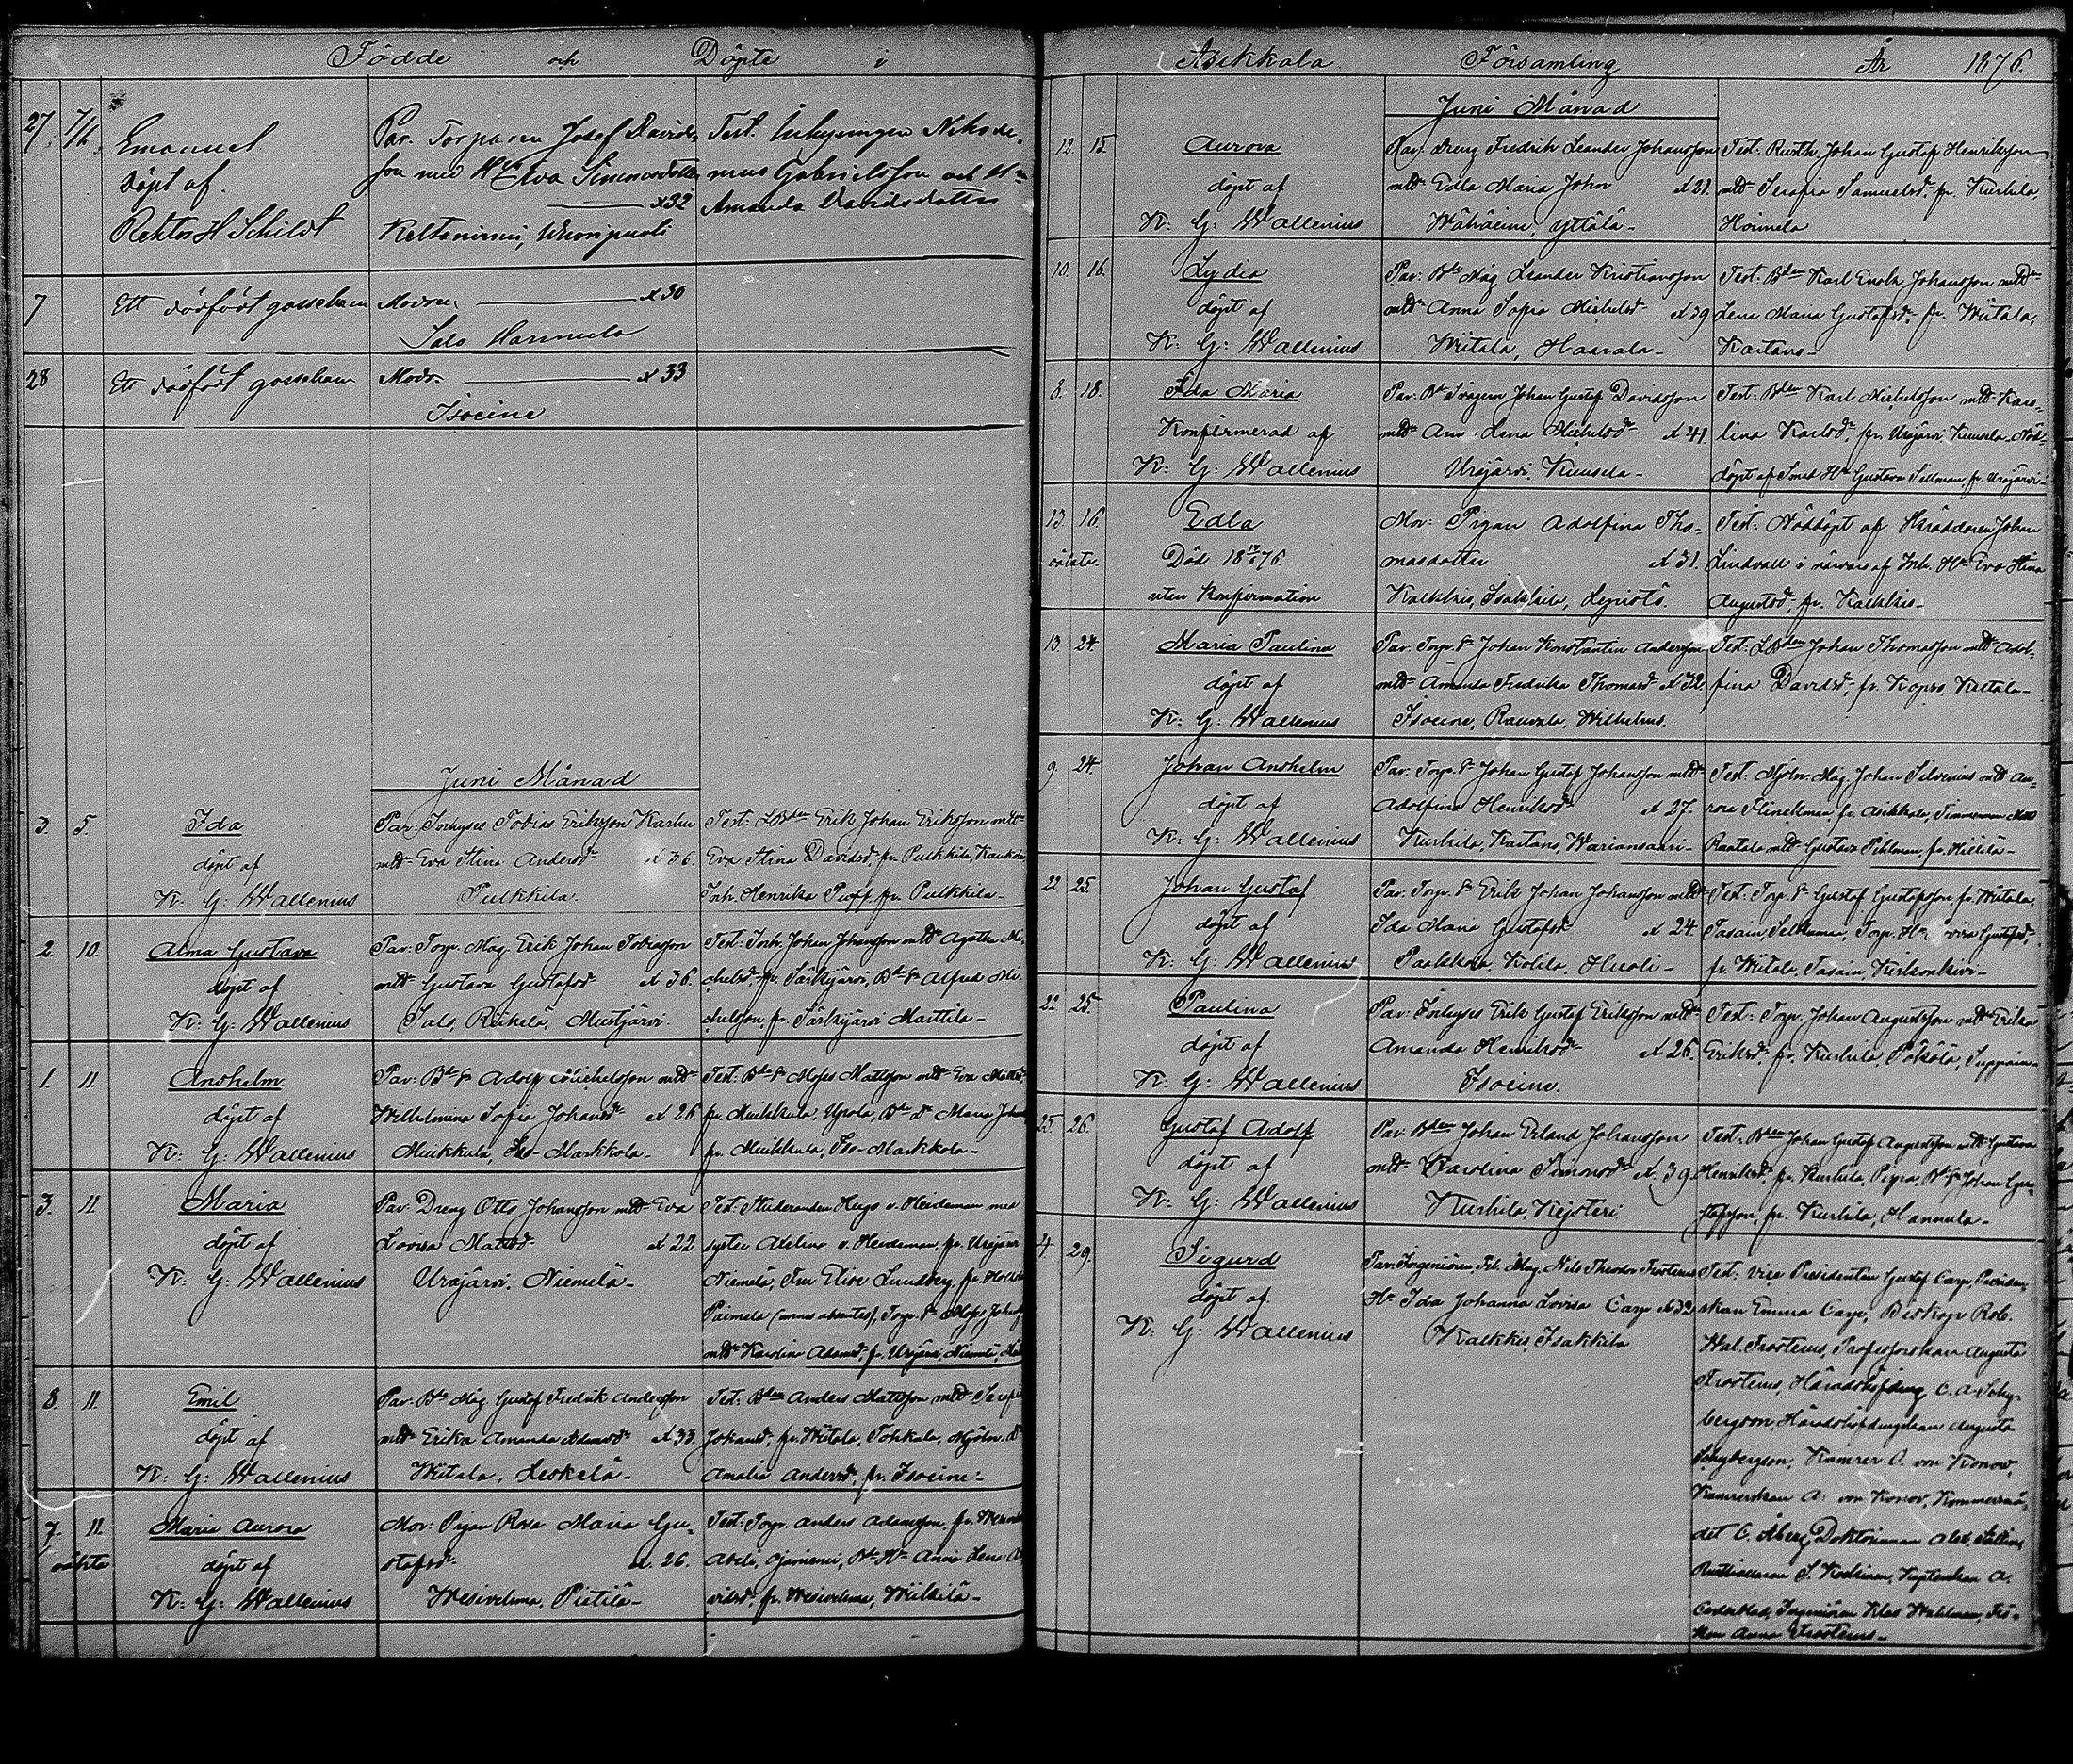 Födde och Döpte i
27. 7/6. Emanuel
Döpt af
Rektor H Schildt
Par. Torparen Josef Davids-
son med Hu Eva Simonsdotter
x 32
Keltaniemi, Wuoripuoli
Test. Inhysingen Nikode-
mus Gabrielsson och Hu
Amanda Davidsdotter
7 Ett dödfödt gossebarn
Modren x 30
Salo Hannula
28 Ett dödfödt gossebarn
Modr. x 33
Isoeine
Juni Månad
3. 5. Ida
döpt af
K: G: Wallenius
Par: Inhyses Tobias Eriksson Karhu
mdr Eva Stina Andersd x 36.
Pulkkila.
Test: LBden Erik Johan Eriksson mdr
Eva Stina Davidsd, fr. Pulkkila, Kaukola
Inh. Henrika Puff fr. Pulkkila-
2. 10. Alma Gustava
döpt af
K: G: Wallenius
Par: Torp. Måg Erik Johan Tobiasson
mdr Gustava Gustafsd x 36.
Salo, Riihelä, Mustjärvi.
Test: Inh. Johan Johansson mdr Agatha Mi-
chelsd, fr. Särkijärvi, Bde S. Alfred Mi-
chelsson, fr. Särkijärvi Marttila-
1. 11. Anshelm
döpt af
K: G: Wallenius
Par: Bde S. Adolf Michelsson mdr
Wilhelmina Sofia Johansd x 26
Muikkula, Iso-Markkola-
Test: Bde S. Moses Mattsson mdr Eva Mattsd
fr. Muikkula, Ypola, Bde Dr Maria Johansd
fr. Muikkula, Iso-Markkola-
3. 11. Maria
döpt af
K: G: Wallenius
Par: Dreng Otto Johansson mdr Eva
Lovisa Matsd x 22.
Urajärvi, Niemelä-
Test: Studeranden Hugo v. Heideman med
syster Adelina v. Heideman, fr. Urajärvi
Niemelä, Fru Elise Lundberg, fr. Hollola
Paimela (omnes absentes), Torp. S. Moses Johansson
mdr Karolina Adamsd, fr. Urajärvi, Niemelä,
8. 11. Emil
döpt af
K: G: Wallenius
Par: Bde Måg Gustaf Fredrik Andersson
mdr Erika Amanda Adamsd x 33.
Wiitala, Leskelä-
Test: Bden Anders Mattsson mdr Serafia
Johansd, fr. Wiitala, Tokkala, Mjöln. D
Amalia Andersd, fr. Isoeine-
7. 11. Maria Aurora
oäkta döpt af
K: G: Wallenius
Mor: Pigan Rosa Maria Gu-
stafsd x. 26.
Wesivehma, Pietilä-
Test: Torp. Anders Adamsson, fr.
Bde Hu Anna Lena Da-
vidsd, fr. Wesivehma, Wiikilä-
Asikkala Församling År 1876.
Juni Månad
12. 15. Aurora
döpt af
K: G: Wallenius
Par: Dreng Fredrik Leander Johansson
mdr Edla Maria Johan x 21.
Wähäeine, Yttälä-
Test: Rusth. Johan Gustaf Henriksson
mdr Serafia Samuelsd, fr. Kurhila,
10. 16. Lydia
döpt af
K: G: Wallenius
Par: Bde Måg Leander Kristiansson
mdr Anna Sofia Michelsd x 39
Wiitala, Haavala-
Test: Bden Karl Enok Johansson mdr
Lena Maria Gustafsd, fr. Wiitala,
Kartano-
8. 18. Ida Maria
Konfirmerad af
K: G: Wallenius
Par: Bde Svågern Johan Gustaf Davidsson
mdr Anna Lena Michelsd x 41.
Urajärvi, Kuusela-
Test: Bden Karl Michelsson mdr Karo-
lina Karlsd, fr. Urajärvi Kuusela-Nöd-
döpt af Smed Hu Gustava Sellman, fr. Urajärvi-
13. 16. Edla
oäkta. Död 18 18/6 76.
utan konfirmation
Mor: Pigan Adolfina Tho-
masdotter x 31.
Kalkkis, Isakkila, Lepistö.
Test: Nöddöpt af Skräddaren Johan
Lindvall i närvaro af Inh. Hu Eva Stina
Augustsd, fr. Kalkkis-
13. 24. Maria Paulina
döpt af
K: G: Wallenius
Par: Torp. S. Johan Konstantin Andersson
mdr Amanda Fredrika Thomasd x 32.
Isoeine, Rauvala, Wilhelms.
Test: LBden Johan Thomasson mdr Adol-
fina Davidsd, fr. Kopso, Kaitala-
9. 24. Johan Anshelm
döpt af
K: G: Wallenius
Par: Torp. S. Johan Gustaf Johansson mdr
Adolfina Henriksd x 27.
Kurhila, Kartano, Warionsaari-
Test: Mjöln. Måg. Johan Silvenius mdr Au-
rora Flinckman, fr. Asikkala, Timmerman
Raatala mdr Gustava Pihlman, fr. Hillilä-
22 25. Johan Gustaf
döpt af
K: G: Wallenius
Par: Torp. S. Erik Johan Johansson mdr
Ida Maria Gustafsd x 24.
Paakkola, Kolila, Huoli-
Test: Torp. S. Gustaf Gustafsson fr. Wiitala
Pasain, Torp. Gustafsd,
fr. Wiitala, Pasain,
22 25. Paulina
döpt af
K: G: Wallenius
Par: Inhyses Erik Gustaf Eriksson mdr
Amanda Henriksd x 26.
Isoeine.
Test: Torp. Johan Augustsson mdr Erika
Eriksd, fr. Kurhila, Pökölä,
25. 26. Gustaf Adolf
döpt af
K: G: Wallenius
Par: Bden Johan Erland Johansson
mdr Karolina Simonsd x. 39
Kurhila, Kejsteri
Test: Bden Johan Gustaf Augustsson mdr Gustava
Henriksd, fr. Kurhila, Pigra, Bde S. Johan Gu-
stafsson, fr. Kurhila, Hannula-
4. 29. Sigurd
döpt af
K: G: Wallenius
Par: Ingeniören, Fil. Mag. Nils Theodor Frosterus
Hu Ida Johanna Lovisa Carp x 32
Kalkkis, Isakkila
Test: Vice Presidenten Gustaf Carp, Presiden-
skan Emma Carp, Biskop Rob.
Wal. Frosterus, Professorskan Augusta
Frosterus, Häradshöfding C. A. Schy-
bergson, Häradshöfdingskan Augusta
Schybergson, Kamrer O. von Konow,
Kamrerskan A. von Konow, Kommersrå-
det C. Åberg, Doktorinnan Alex.
S. Kaptenskan A.
Cederblad, Ingeniören Klas Frö-
ken Anna Frosterus-